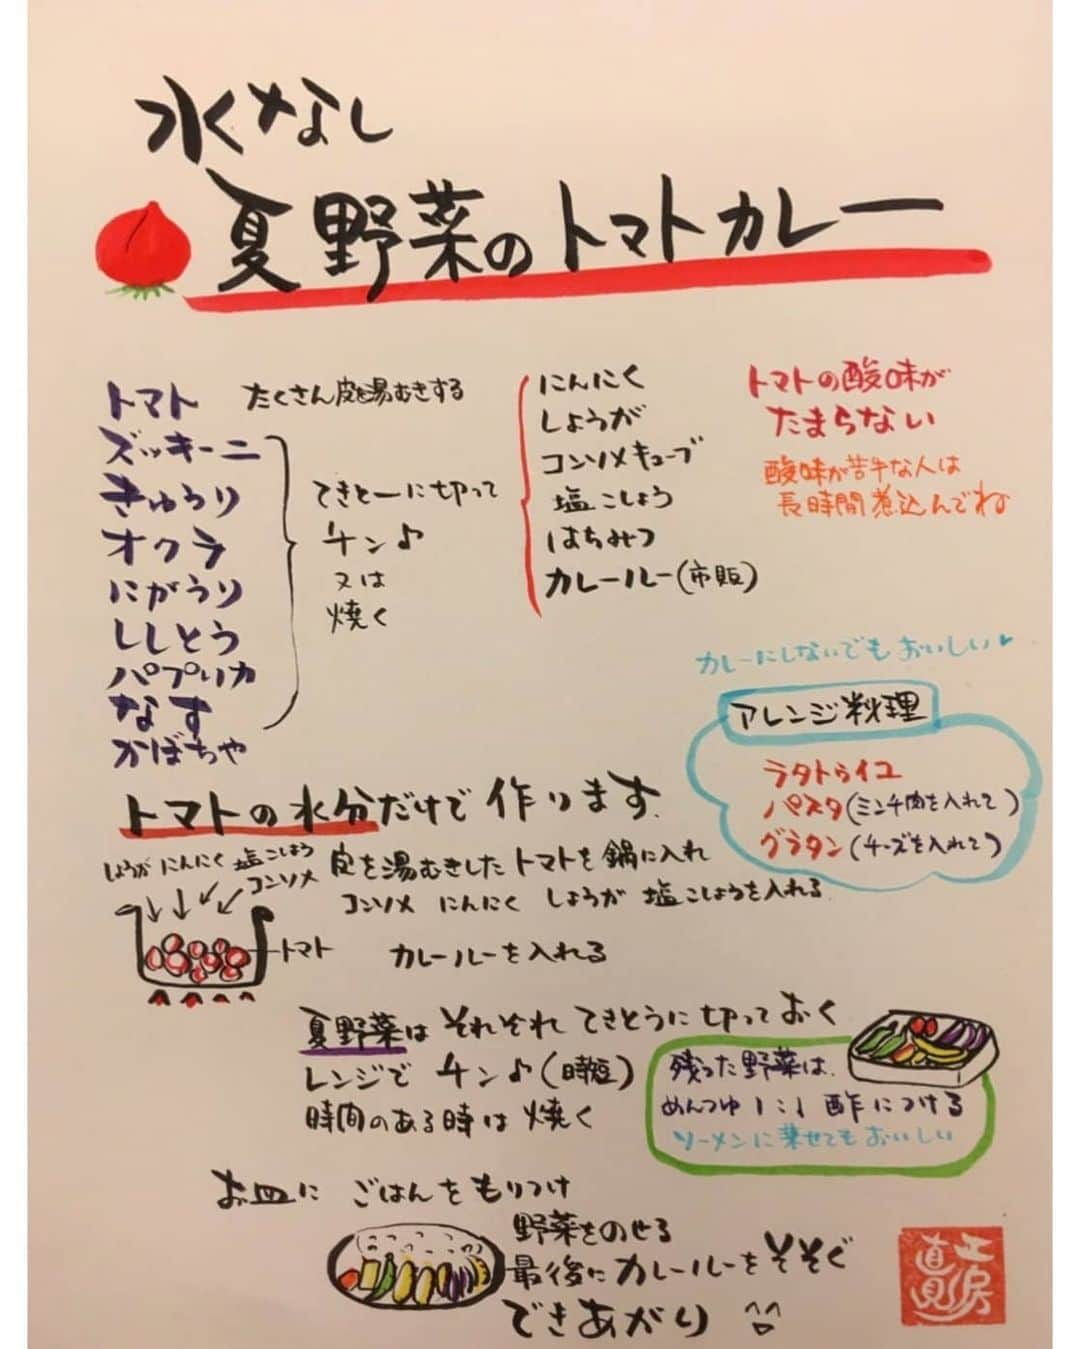 水なし
夏野菜のトマトカレー
トマト たくさん皮を湯むきする
ズッキーニ
きゅうり
オクラ
にがうり
ししとう
パプリカ
なす
かぼちゃ
てきとーに切って
チン♪
又は
焼く
にんにく
しょうが
コンソメキューブ
塩こしょう
はちみつ
カレールー(市販)
トマトの酸味が
たまらない
酸味が苦手な人は
長時間煮込んでね
カレーにしないでもおいしい♥
アレンジ料理
ラタトゥイユ
パスタ(ミンチ肉を入れて)
グラタン(チーズを入れて)
トマトの水分だけで作ります.
しょうが にんにく 塩こしょう
コンソメ
トマト
皮を湯むきしたトマトを鍋に入れ
コンソメ にんにく しょうが 塩こしょうを入れる
カレールーを入れる
夏野菜はそれぞれてきとうに切っておく
レンジでチン♪(時短)
時間のある時は焼く
残った野菜は.
めんつゆ1:1酢につける
ソーメンに乗せてもおいしい
お皿に ごはんをもりつけ
野菜をのせる
最後にカレールーをそそぐ
できあがり
工房
直見